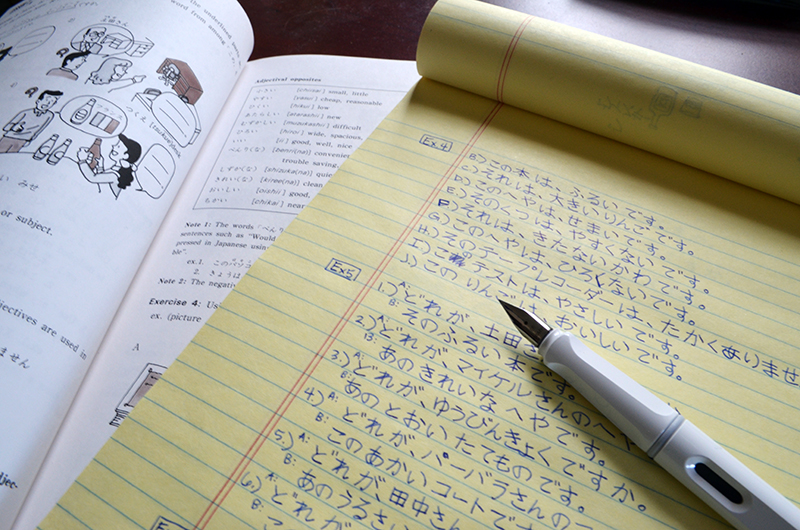 the underlined
word from among
つくえ [tsukue] desk
みせ
or subject.
djectives are used in
ません
Adjectival opposites
[chiisai] small, little
[yasui] cheap, reasonable
[hikui] low
[atarashii] new
[muzukashii] difficult
[hiroi] wide, spacious.
[ii] good, well, nice
[benri(na)] convenient
trouble saving.
しずかな(な) [shizuka(na)]
きれい(な) [kiree(na)] clean
おいしい [oishii] good,
ちかい [chikai] near
Note 1: The words
sentences such as "Would
pressed in Japanese using
ble".
ex. 1.
2. きょうは
Note 2: The negative
Exercise 4:
ex. (picture
A
Ex.4
B) この本は、ふるいです。
C) それは、大きいりんごです。
D) このへやは、せまいです。
E) そのくつは、やすくないです。
F) それは、きたないかわです。
G) このへやは、ひろくないです。
H) そのテープレコーダーは、たかくありませ
I) このテストは、やさしいです。
J) このりんごは、おいしいです。
Ex5
1.) A: どれが、土田さ
B: そのふるい本です。
2.) A: どれが、マイケルさんのへや
B: あのきれいなへやです。
3.) A: どれが、ゆうびんきょくですか。
B: あのとおいたてものです。
4.) A: どれが、バーバラさんの
B: このあかいコートで
5.) A: どれが、田中さん
B: あのうるさい
6.) A: どれが